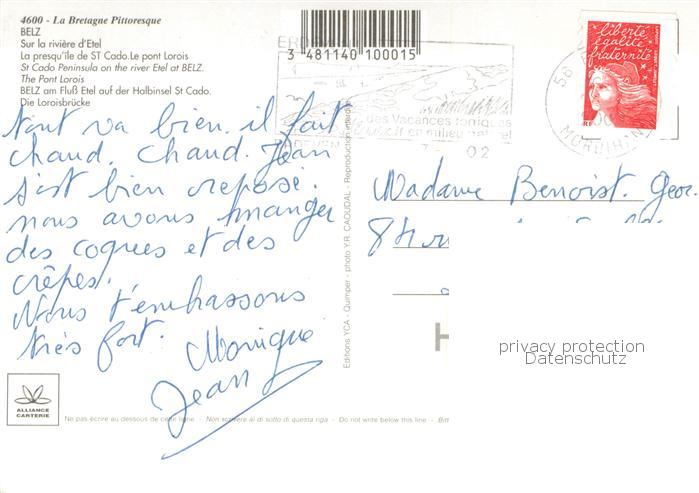 4600 - La Bretagne Pittoresque
BELZ
Sur la rivière d'Etel
La presqu'île de ST Cado.Le pont Lorois
St Cado Peninsula on the river Etel at BELZ.
The Pont Lorois
BELZ am Fluß Etel auf der Halbinsel St Cado.
Die Loroisbrücke
tout va bien. il fait
chaud. Chaud. Jean
s'est bien reposé.
nous avons manger
des coques et des
crêpes.
Nous t'embrassons
très fort. Monique
Jean
ALLIANCE
CARTERIE
Ne pas écrire au dessous de cette ligne - Non scrivere al di sotto di questa riga - Do not write below this line - Bitt
Editions YCA - Quimper - photo Y.R. CAOUDAL - Reproduction interdite
3 481140 100015
des Vacances toniques
en milieu naturel
02
56
MORBIHAN
liberté
égalité
fraternité
RF
LA POSTE
Madame Benoist. Geor.
8
H
privacy protection
Datenschutz